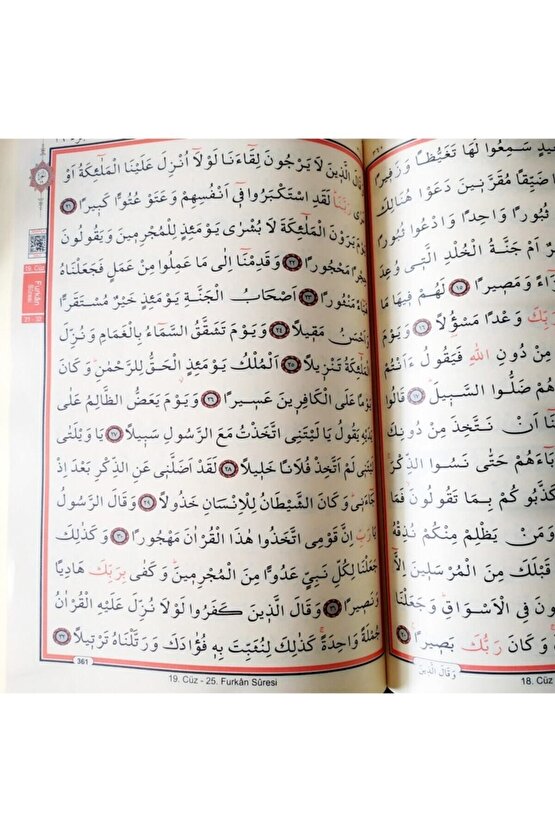 سَمِعُوا لَهَا تَغَيُّظًا وَزَفِيرًا
ضَيِّقًا مُقَرَّنِينَ دَعَوْا هُنَالِكَ
ثُبُورًا وَاحِدًا وَادْعُوا ثُبُورًا
اَمْ جَنَّةُ الْخُلْدِ الَّتِي وُعِدَ
وَمَصِيرًا ﴿١٥﴾ لَهُمْ فِيهَا مَا
رَبِّكَ وَعْدًا مَسْؤُلًا ﴿١٦﴾ وَيَوْمَ
مِنْ دُونِ اللّٰهِ فَيَقُولُ ءَاَنْتُمْ
هُمْ ضَلُّوا السَّبِيلَ ﴿١٧﴾ قَالُوا
اَنْ نَتَّخِذَ مِنْ دُونِكَ
حَتّٰى نَسُوا الذِّكْرَ
كَذَّبُوكُمْ بِمَا تَقُولُونَ فَمَا
وَمَنْ يَظْلِمْ مِنْكُمْ نُذِقْهُ
قَبْلَكَ مِنَ الْمُرْسَلِينَ اِلَّٓا
فِي الْاَسْوَاقِ وَجَعَلْنَا
وَكَانَ رَبُّكَ بَصِيرًا ﴿٢٠﴾
وَقَالَ الَّذِينَ
18. Cüz
قَالَ الَّذِينَ لَا يَرْجُونَ لِقَٓاءَنَا لَوْلَٓا اُنْزِلَ عَلَيْنَا الْمَلٰٓئِكَةُ اَوْ
رَبَّنَا لَقَدِ اسْتَكْبَرُوا فِٓي اَنْفُسِهِمْ وَعَتَوْ عُتُوًّا كَبِيرًا ﴿٢١﴾
يَرَوْنَ الْمَلٰٓئِكَةَ لَا بُشْرٰى يَوْمَئِذٍ لِلْمُجْرِمِينَ وَيَقُولُونَ
مَحْجُورًا ﴿٢٢﴾ وَقَدِمْنَٓا اِلٰى مَا عَمِلُوا مِنْ عَمَلٍ فَجَعَلْنَاهُ
مَنْثُورًا ﴿٢٣﴾ اَصْحَابُ الْجَنَّةِ يَوْمَئِذٍ خَيْرٌ مُسْتَقَرًّا
وَاَحْسَنُ مَقِيلًا ﴿٢٤﴾ وَيَوْمَ تَشَقَّقُ السَّمَٓاءُ بِالْغَمَامِ وَنُزِّلَ
الْمَلٰٓئِكَةُ تَنْزِيلًا ﴿٢٥﴾ اَلْمُلْكُ يَوْمَئِذٍ الْحَقُّ لِلرَّحْمٰنِ وَكَانَ
يَوْمًا عَلَى الْكَافِرِينَ عَسِيرًا ﴿٢٦﴾ وَيَوْمَ يَعَضُّ الظَّالِمُ عَلٰى
يَدَيْهِ يَقُولُ يَا لَيْتَنِي اتَّخَذْتُ مَعَ الرَّسُولِ سَبِيلًا ﴿٢٧﴾ يَا وَيْلَتٰى
لَيْتَنِي لَمْ اَتَّخِذْ فُلَانًا خَلِيلًا ﴿٢٨﴾ لَقَدْ اَضَلَّنِي عَنِ الذِّكْرِ بَعْدَ اِذْ
جَٓاءَنِي وَكَانَ الشَّيْطَانُ لِلْاِنْسَانِ خَذُولًا ﴿٢٩﴾ وَقَالَ الرَّسُولُ
يَا رَبِّ اِنَّ قَوْمِي اتَّخَذُوا هٰذَا الْقُرْاٰنَ مَهْجُورًا ﴿٣٠﴾ وَكَذٰلِكَ
جَعَلْنَا لِكُلِّ نَبِيٍّ عَدُوًّا مِنَ الْمُجْرِمِينَ وَكَفٰى بِرَبِّكَ هَادِيًا
وَنَصِيرًا ﴿٣١﴾ وَقَالَ الَّذِينَ كَفَرُوا لَوْلَا نُزِّلَ عَلَيْهِ الْقُرْاٰنُ
جُمْلَةً وَاحِدَةً كَذٰلِكَ لِنُثَبِّتَ بِهِ فُؤٰادَكَ وَرَتَّلْنَاهُ تَرْتِيلًا ﴿٣٢﴾
19. Cüz
Furkân
Sûresi
361
19. Cüz - 25. Furkân Sûresi